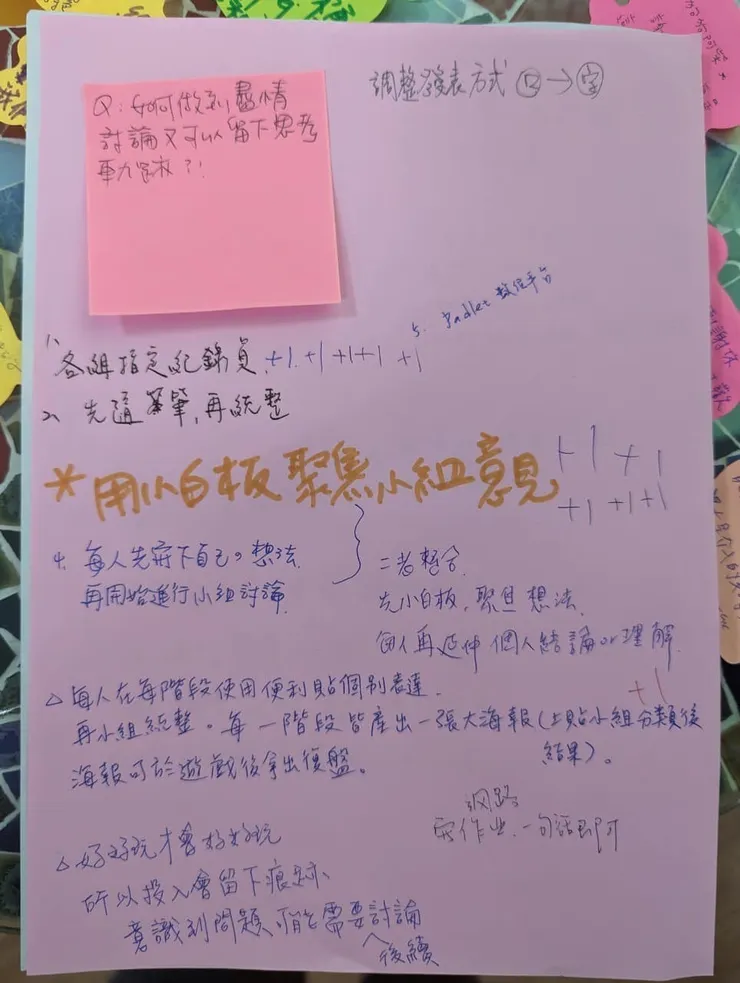 調整發表方式 口→字
Q:如何做到盡情
討論又可以留下思考
軌跡?!
5. Padlet 數位平台
1. 各組指定紀錄員 +1 +1 +1 +1 +1
2. 先通 筆,再統整
*用小白板聚焦小組意見 +1 +1
+1 +1 +1
4. 每人先寫下自己的想法
再開始進行小組討論
二者整合
先小白板,聚焦想法
每人再延伸個人結論or理解
+1
△每人在每階段使用便利貼個別表達
再小組統整。每一階段皆產出一張大海報(上貼小組分類後
結果)。
海報可於遊戲後拿出復盤。
網路
寫作業,一句話即可
△好好玩才會好好玩
所以投入會留下痕跡
意識到問題,可能需要討論
後續